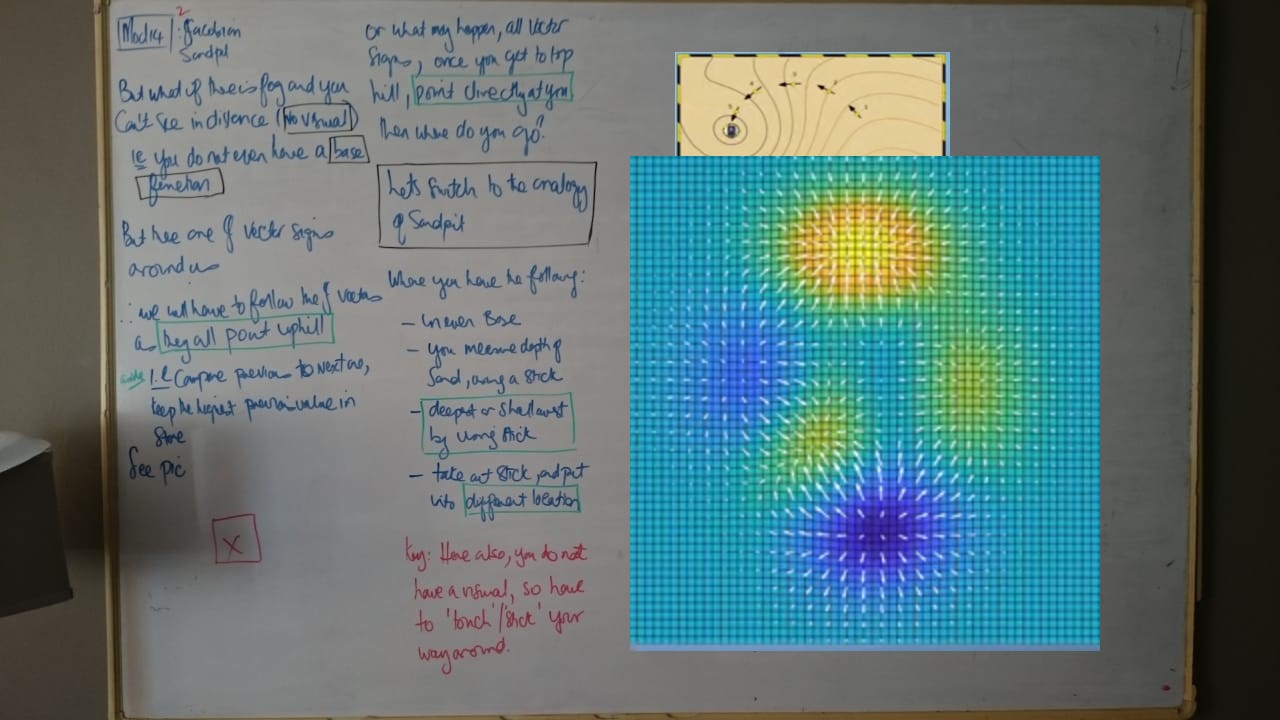 Mod14 : 2 Jacobian
Sandpit
But what if there is fog and you
Can't see in distance (No visual)
ie you do not even have a base
function
But here are of vector signs
around us
∴ we will have to follow the of vectors
as they all point uphill
1.e Compare previous to next one,
keep the highest previous value in
store
See pic
X
or what may happen, all vector
signs, once you get to top
hill, point directly at you
Then where do you go?
Lets switch to the analogy
of Sandpit
Where you have the following:
- uneven Base
- you measure depth of
Sand, using a stick
- deepest or shallowest
by using stick
- take out stick, and put
into different location
Key: Here also, you do not
have a visual, so have
to 'touch'/'stick' your
way around.